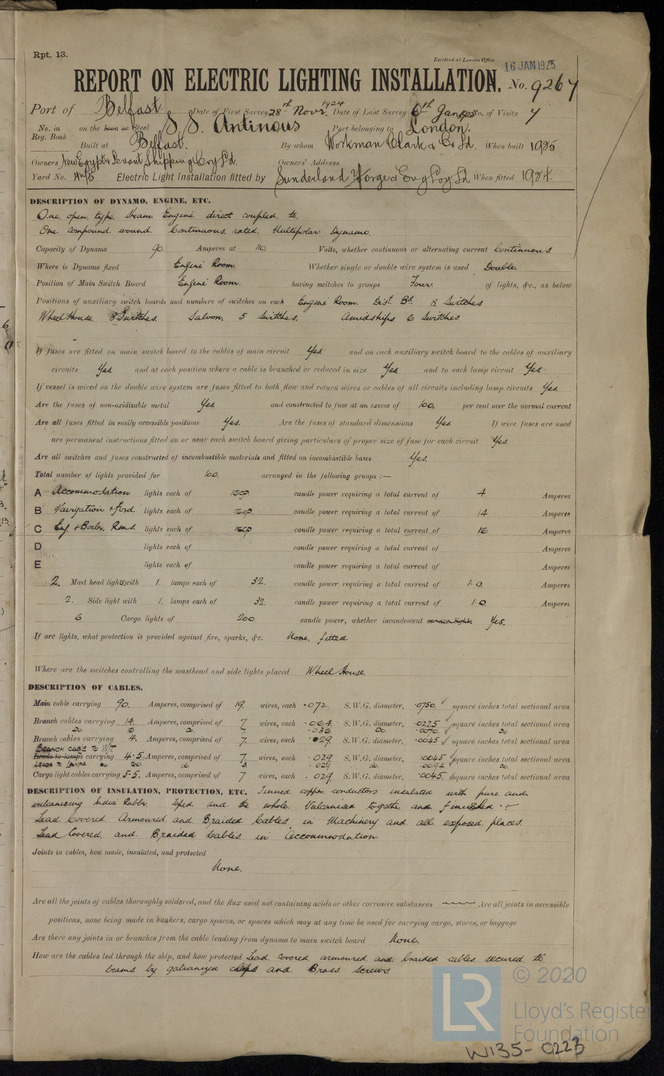 Rpt. 13.
Received at London Office 16 JAN 1925
REPORT ON ELECTRIC LIGHTING INSTALLATION. No. 9267
Port of Belfast Date of First Survey 28th Novr 1924 Date of Last Survey 6th Jan 1925 No. of Visits 7
No. in Reg. Book on the Iron or Steel S.S. Antinous Port belonging to London.
Built at Belfast. By whom Workman Clark & Co Ld. When built 1925
Owners New Egypt & Levant Shipping Coy Ld Owners' Address
Yard No. Electric Light Installation fitted by Sunderland Forge & Eng Coy Ld When fitted 1924
DESCRIPTION OF DYNAMO, ENGINE, ETC.
One open type steam Engine direct coupled to
One compound wound. Continuous rated. Multipolar Dynamo.
Capacity of Dynamo 90 Amperes at 110 Volts, whether continuous or alternating current Continuous
Where is Dynamo fixed Engine Room. Whether single or double wire system is used Double
Position of Main Switch Board Engine Room. having switches to groups Four of lights, &c., as below
Positions of auxiliary switch boards and numbers of switches on each Engine Room. Dist Bd. 8 Switches
Wheel House 8 Switches. Saloon, 5 Switches. Amidships 6 Switches
If fuses are fitted on main switch board to the cables of main circuit Yes and on each auxiliary switch board to the cables of auxiliary
circuits Yes and at each position where a cable is branched or reduced in size Yes and to each lamp circuit Yes
If vessel is wired on the double wire system are fuses fitted to both flow and return wires or cables of all circuits including lamp circuits Yes
Are the fuses of non-oxidizable metal Yes and constructed to fuse at an excess of 100 per cent over the normal current
Are all fuses fitted in easily accessible positions Yes. Are the fuses of standard dimensions Yes If wire fuses are used
are permanent instructions fitted on or near each switch board giving particulars of proper size of fuse for each circuit Yes.
Are all switches and fuses constructed of incombustible materials and fitted on incombustible bases Yes.
Total number of lights provided for 100. arranged in the following groups :—
A Accommodation lights each of candle power requiring a total current of 4 Amperes
B Navigation & Ford lights each of candle power requiring a total current of 14 Amperes
C Eng & Boiler Rms lights each of candle power requiring a total current of Amperes
D lights each of candle power requiring a total current of Amperes
E lights each of candle power requiring a total current of Amperes
2. Mast head lights with 1. lamps each of 32. candle power requiring a total current of 1.0. Amperes
2. Side light with 1. lamps each of 32 candle power requiring a total current of 1.0 Amperes
6 Cargo lights of 200 candle power, whether incandescent or arc lights Yes.
If arc lights, what protection is provided against fire, sparks, &c. None fitted
Where are the switches controlling the masthead and side lights placed Wheel House
DESCRIPTION OF CABLES.
Main cable carrying 90. Amperes, comprised of 19. wires, each .072. S.W.G. diameter, .0750. square inches total sectional area
Branch cables carrying 14 Amperes, comprised of 7 wires, each .064. S.W.G. diameter, .0225 square inches total sectional area
Branch cables carrying 4. Amperes, comprised of 7 wires, each .029 S.W.G. diameter, .0045 square inches total sectional area
Branch cable to W/T
carrying 4.5 Amperes, comprised of 7 wires, each .029 S.W.G. diameter, .0045 square inches total sectional area
Cargo light cables carrying 5.5. Amperes, comprised of 7 wires, each .029 S.W.G. diameter, .0045. square inches total sectional area
DESCRIPTION OF INSULATION, PROTECTION, ETC. Tinned copper conductors insulated with pure and
vulcanising India Rubber taped and the whole Vulcanised together and finished
Lead Covered Armoured and Braided Cables in Machinery and all exposed places.
Lead Covered, and Braided Cables in accommodation
Joints in cables, how made, insulated, and protected
None.
Are all the joints of cables thoroughly soldered, and the flux used not containing acids or other corrosive substances Are all joints in accessible
positions, none being made in bunkers, cargo spaces, or spaces which may at any time be used for carrying cargo, stores, or baggage
Are there any joints in or branches from the cable leading from dynamo to main switch board None.
How are the cables led through the ship, and how protected Lead covered armoured and braided cables secured to
beams by galvanized clips and Brass screws
© 2020
LR Lloyd's Register
Foundation
W135-0223